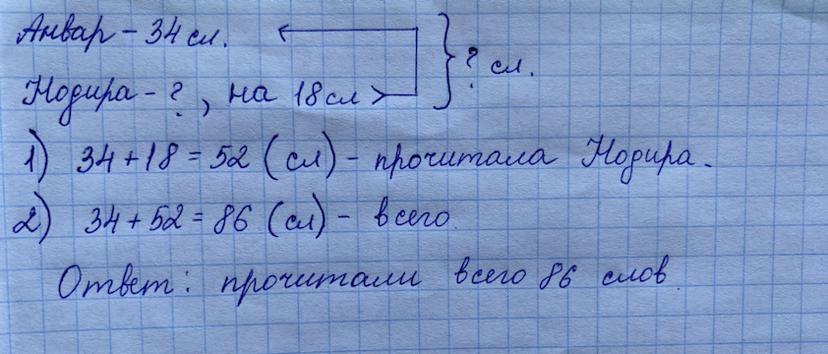 Анвар – 34 сл.
Нодира – ?, на 18 сл > } ? сл.
1) 34 + 18 = 52 (сл) – прочитала Нодира.
2) 34 + 52 = 86 (сл) – всего.
Ответ: прочитали всего 86 слов.